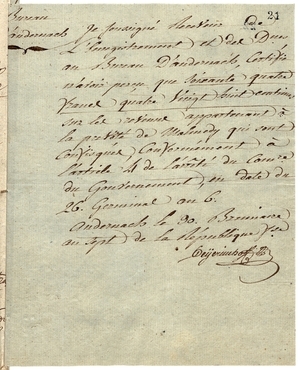 21
Bureau
d'andernach
Je soussigné Receveur De
L'Enregistrement et des Dom
au Bureau D'andernach, Certifie
n'avoir perçu que Soixante quatre
francs quatre Vingt huit centimes
sur les revenus appartenant à
la prévôté de Malmedy qui sont
Confisqués Conformément à
l'article de l'arrêté du Comre
du Gouvernement, en date du
26. Germinal an 6.
Andernach le 30. Brumaire
an sept de la République fse